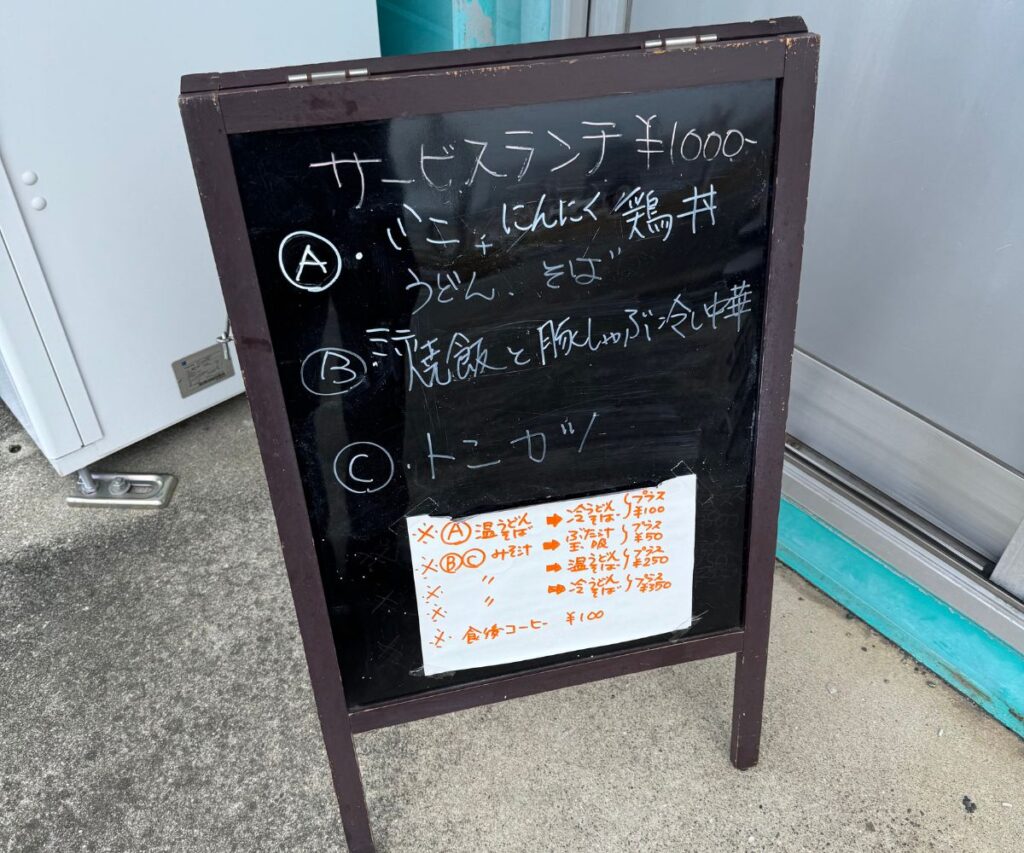 サービスランチ ¥1000-
Ⓐ・ミニ、にんにく鶏丼
うどん、そば
Ⓑ ミニ焼飯と豚しゃぶ冷し中華
Ⓒ・トンカツ
※Ⓐ温うどんそば ➡ 冷うどんそば プラス¥100
※ⒷⒸみそ汁 ➡ ぶた汁 玉吸 プラス¥50
※ 〃 ➡ 温うどんそば プラス¥250
※ 〃 ➡ 冷うどんそば プラス¥350
※ 食後コーヒー ¥100